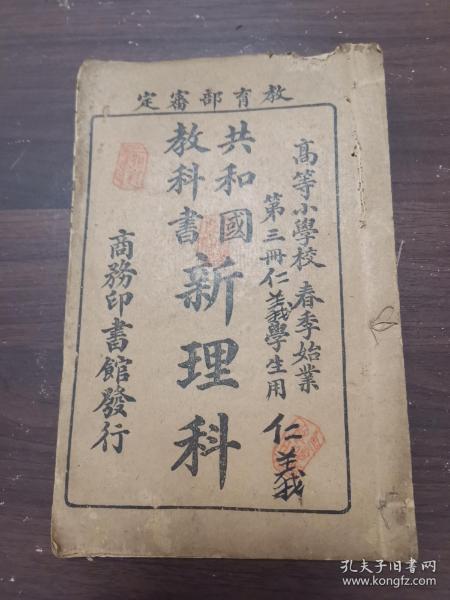 教育部審定
高等小學校 春季始業
第三冊仁義學生用 仁義
共和國
教科書
新理科
商務印書館發行
孔夫子旧书网
www.kongfz.com